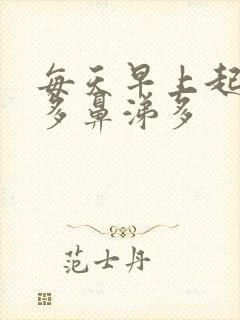 每天早上起
多鼻涕多
范士丹